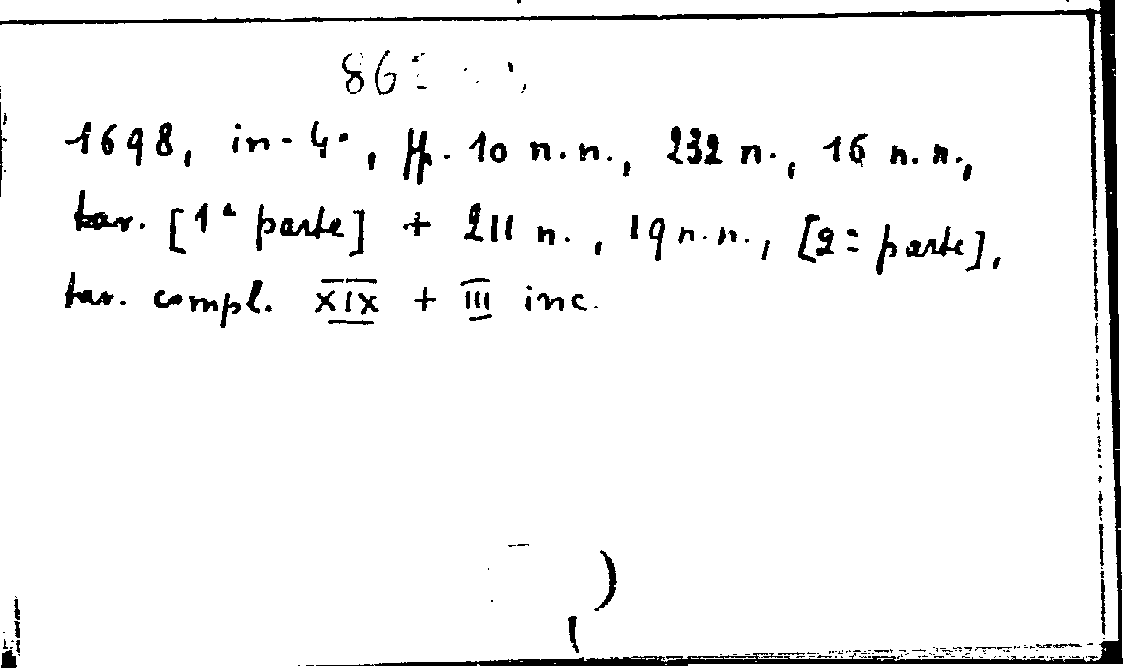 1698, in-4°, pp. 10 n.n., 232 n., 16 n.n.,
tav. [1ª parte] + 211 n., 19 n.n., [2ª parte],
tav. compl. XIX + III inc.